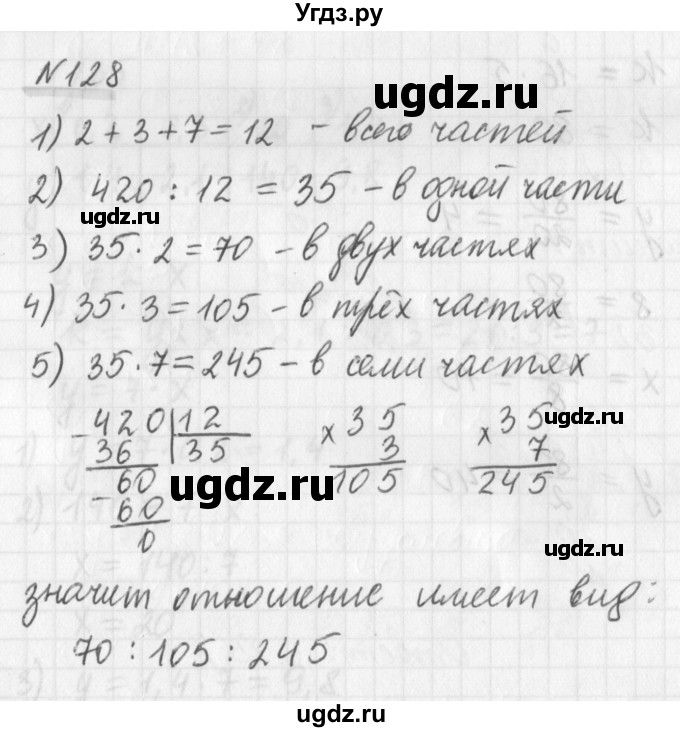 Угдз.ру
№128
ugdz.ru
1) 2 + 3 + 7 = 12 - всего частей
2) 420 : 12 = 35 - в одной части
ugdz.ru
3) 35 · 2 = 70 - в двух частях
4) 35 · 3 = 105 - в трёх частях
5) 35 · 7 = 245 - в семи частях
- 420 | 12   × 35   × 35
ugdz.ru
36   35   3   7
60   105   245
ugdz.ru
- 60
0
ugdz.ru
значит отношение имеет вид:
70 : 105 : 245
ugdz.ru